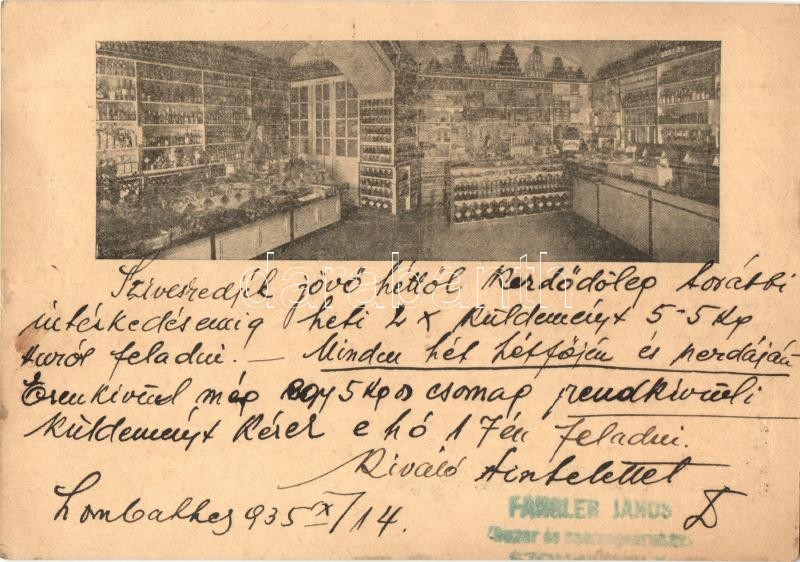 Sziveskedjék jövő héttől kezdődőleg további
intézkedésemig heti 2x küldeményt 5-5 kg
turót feladni. — Minden hét hétfőjén és szerdáján
Ezenkivül még egy 5 kg os csomag rendkivüli
küldeményt kérek e hó 17én feladni.
Kiváló tisztelettel
Szombathely 935 X/14.
FAMBLER JÁNOS
fűszer és csemegeáruháza
SZOMBATHELY
darabanth.com